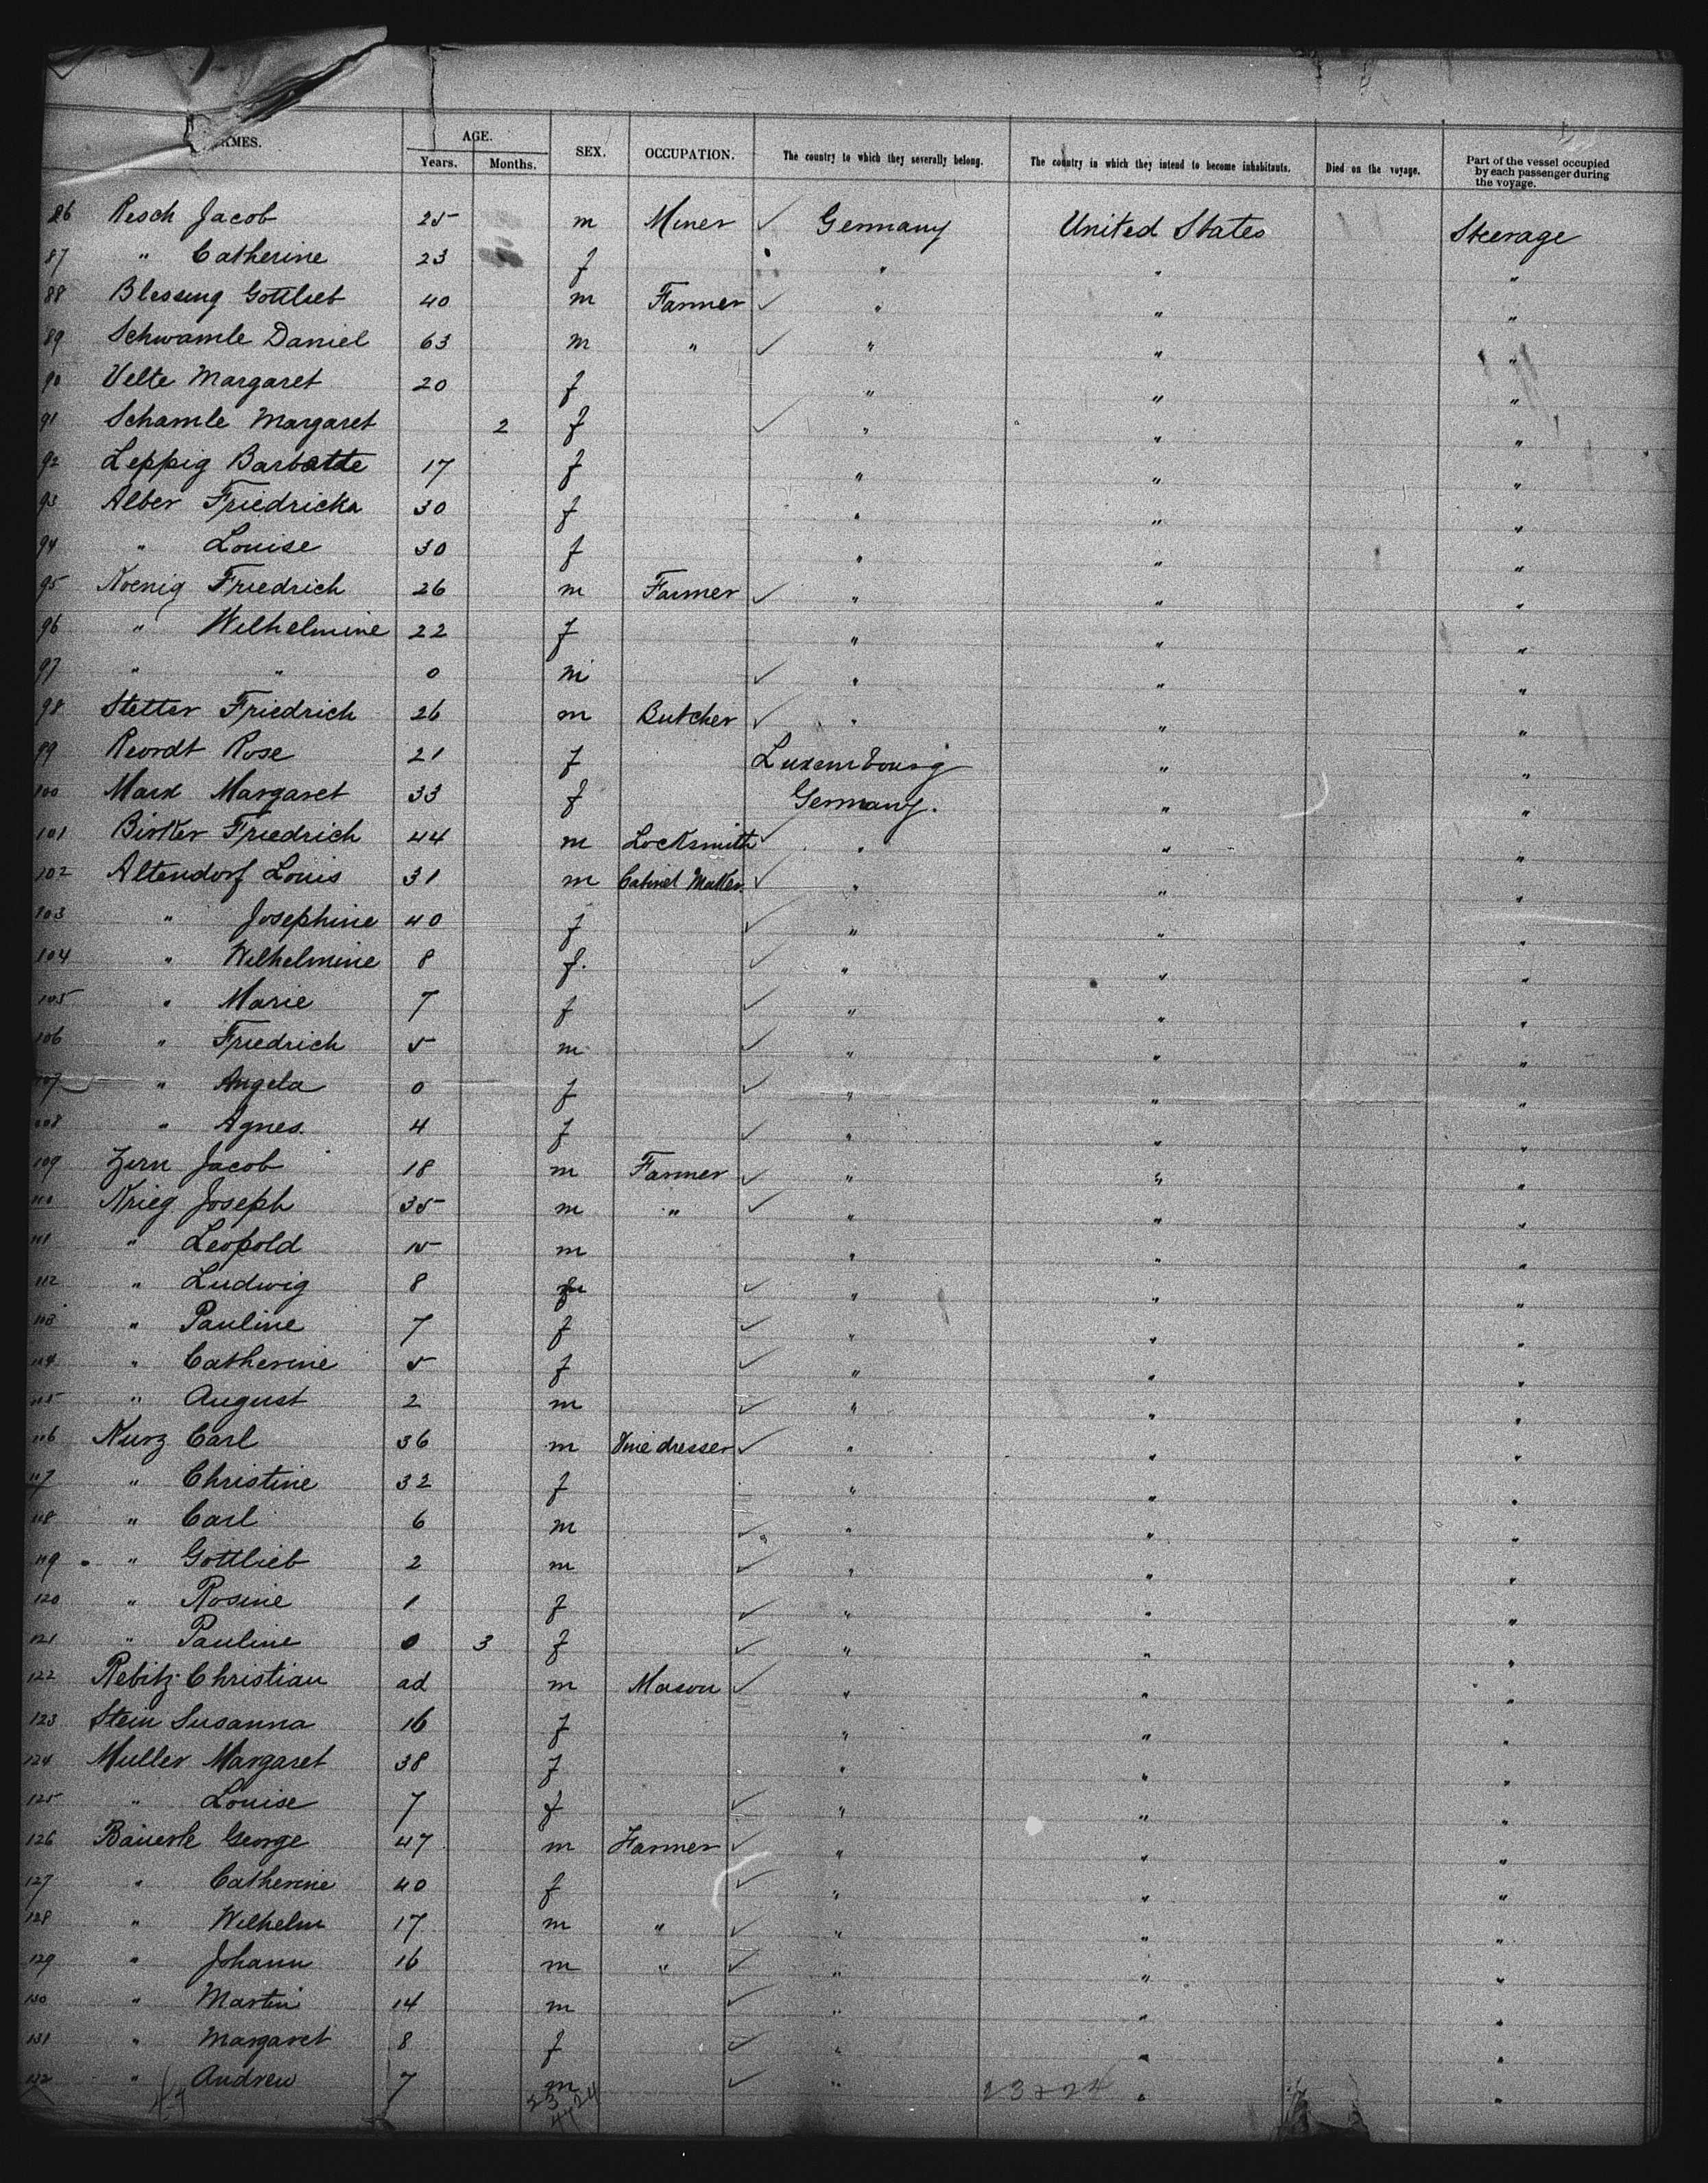 NAMES. AGE. SEX. OCCUPATION. The country to which they severally belong. The country in which they intend to become inhabitants. Died on the voyage. Part of the vessel occupied by each passenger during the voyage.
Years. Months.
86 Resch Jacob 25 m Miner ✓ Germany United States Steerage
87 " Catherine 23 f " " "
88 Blessing Gottlieb 40 m Farmer ✓ " " "
89 Schwamle Daniel 63 m " ✓ " " "
90 Velte Margaret 20 f " " "
91 Schamle Margaret 2 f ✓ " " "
92 Leppig 17 f " " "
93 Alber Friedricka 30 f " " "
94 " Louise 30 f " " "
95 Koenig Friedrich 26 m Farmer ✓ " " "
96 " Wilhelmine 22 f " " "
97 " " 0 m ✓ " " "
98 Stetter Friedrich 26 m Butcher ✓ " " "
99 Reordt Rose 21 f Luxembourg " "
100 Marx Margaret 33 f Germany. " "
101 Birker Friedrich 44 m Locksmith ✓ " " "
102 Altendorf Louis 31 m Cabinet Maker. ✓ " " "
103 " Josephine 40 f ✓ " " "
104 " Wilhelmine 8 f. ✓ " " "
105 " Marie 7 f ✓ " " "
106 " Friedrich 5 m ✓ " " "
107 " Angela 0 f ✓ " " "
108 " Agnes. 4 f ✓ " " "
109 Zirn Jacob 18 m Farmer ✓ " " "
110 Krieg Joseph 35 m " ✓ " " "
111 " Leopold 15 m " " "
112 " Ludwig 8 m ✓ " " "
113 " Pauline 7 f ✓ " " "
114 " Catherine 5 f ✓ " " "
115 " August 2 m ✓ " " "
116 Kurz Carl 36 m Vine dresser ✓ " " "
117 " Christine 32 f " " "
118 " Carl 6 m ✓ " " "
119 " Gottlieb 2 m ✓ " " "
120 " Rosine 1 f ✓ " " "
121 " Pauline 0 3 f ✓ " " "
122 Rebitz Christian ad m Mason ✓ " " "
123 Stein Susanna 16 f " " "
124 Muller Margaret 38 f " " "
125 " Louise 7 f ✓ " " "
126 Bäuerle George 47 m Farmer ✓ " " "
127 " Catherine 40 f ✓ " " "
128 " Wilhelm 17 m " ✓ " " "
129 " Johann 16 m " ✓ " " "
130 " Martin 14 m ✓ " " "
131 " Margaret 8 f ✓ " " "
132 " Andrew 7 m ✓ " " "
47 23 24 23+24
47